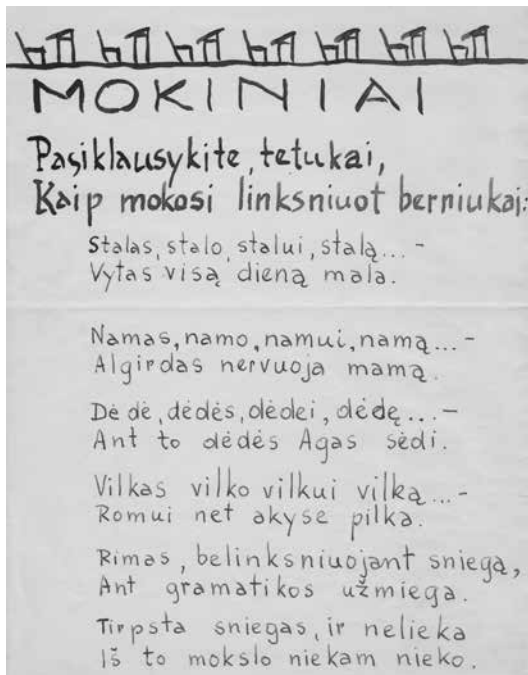 MOKINIAI
Pasiklausykite, tetukai,
Kaip mokosi linksniuot berniukai:
Stalas, stalo, stalui, stalą...-
Vytas visą dieną mala.
Namas, namo, namui, namą...-
Algirdas nervuoja mamą.
Dė dė, dėdės, dėdei, dėdę...-
Ant to dėdės Agas sėdi.
Vilkas vilko vilkui vilką...-
Romui net akyse pilka.
Rimas, belinksniuojant sniegą,
Ant gramatikos užmiega.
Tirpsta sniegas, ir nelieka
Iš to mokslo niekam nieko.